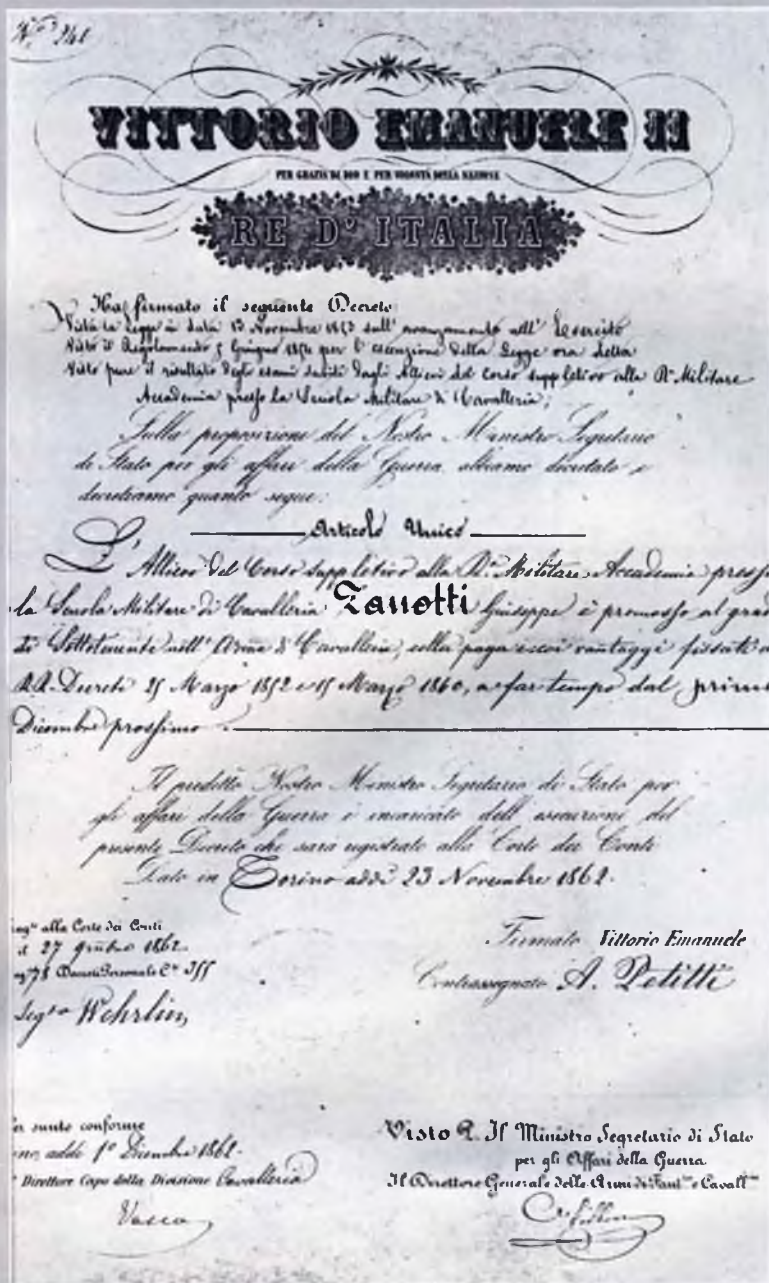 N° 241
VITTORIO EMANUELE II
PER GRAZIA DI DIO E PER VOLONTÀ DELLA NAZIONE
RE D'ITALIA
Ha firmato il seguente Decreto
Vista la Legge in data 13 Novembre 1853 sull' avanzamento nell' Esercito
Visto il Regolamento 5 Giugno 1854 per l' esecuzione della Legge ora detta
Visto pure il risultato degli esami subiti dagli Allievi del corso suppletivo alla Rª. Militare
Accademia presso la Scuola Militare di Cavalleria;
Sulla proposizione del Nostro Ministro Segretario
di Stato per gli affari della Guerra abbiamo decretato e
decretiamo quanto segue:
Articolo Unico
L' Allievo del Corso suppletivo alla Rª. Militare Accademia presso
la Scuola Militare di Cavalleria Zanotti Giuseppe è promosso al grad
di Sottotenente nell' Arma di Cavalleria, colla paga e coi vantaggi fissati d
RR. Decreti 25 Marzo 1852 e 15 Marzo 1860, a far tempo dal primo
Dicembre prossimo.
Il predetto Nostro Ministro Segretario di Stato per
gli affari della Guerra è incaricato dell' esecuzione del
presente Decreto che sarà registrato alla Corte dei Conti
Dato in Torino addì 23 Novembre 1862.
Firmato Vittorio Emanuele
Contrassegnato A. Petitti
alla Corte dei Conti
27 1862
78 Decreti Personale C.te 355
Segto Wehrlin
sunto conforme
addì 1° Dicembre 1862.
Direttore Capo della Divisione Cavalleria
Vasco
Visto P. Il Ministro Segretario di Stato
per gli Affari della Guerra
Il Direttore Generale delle Armi di Fant.ie e Cavall.ia